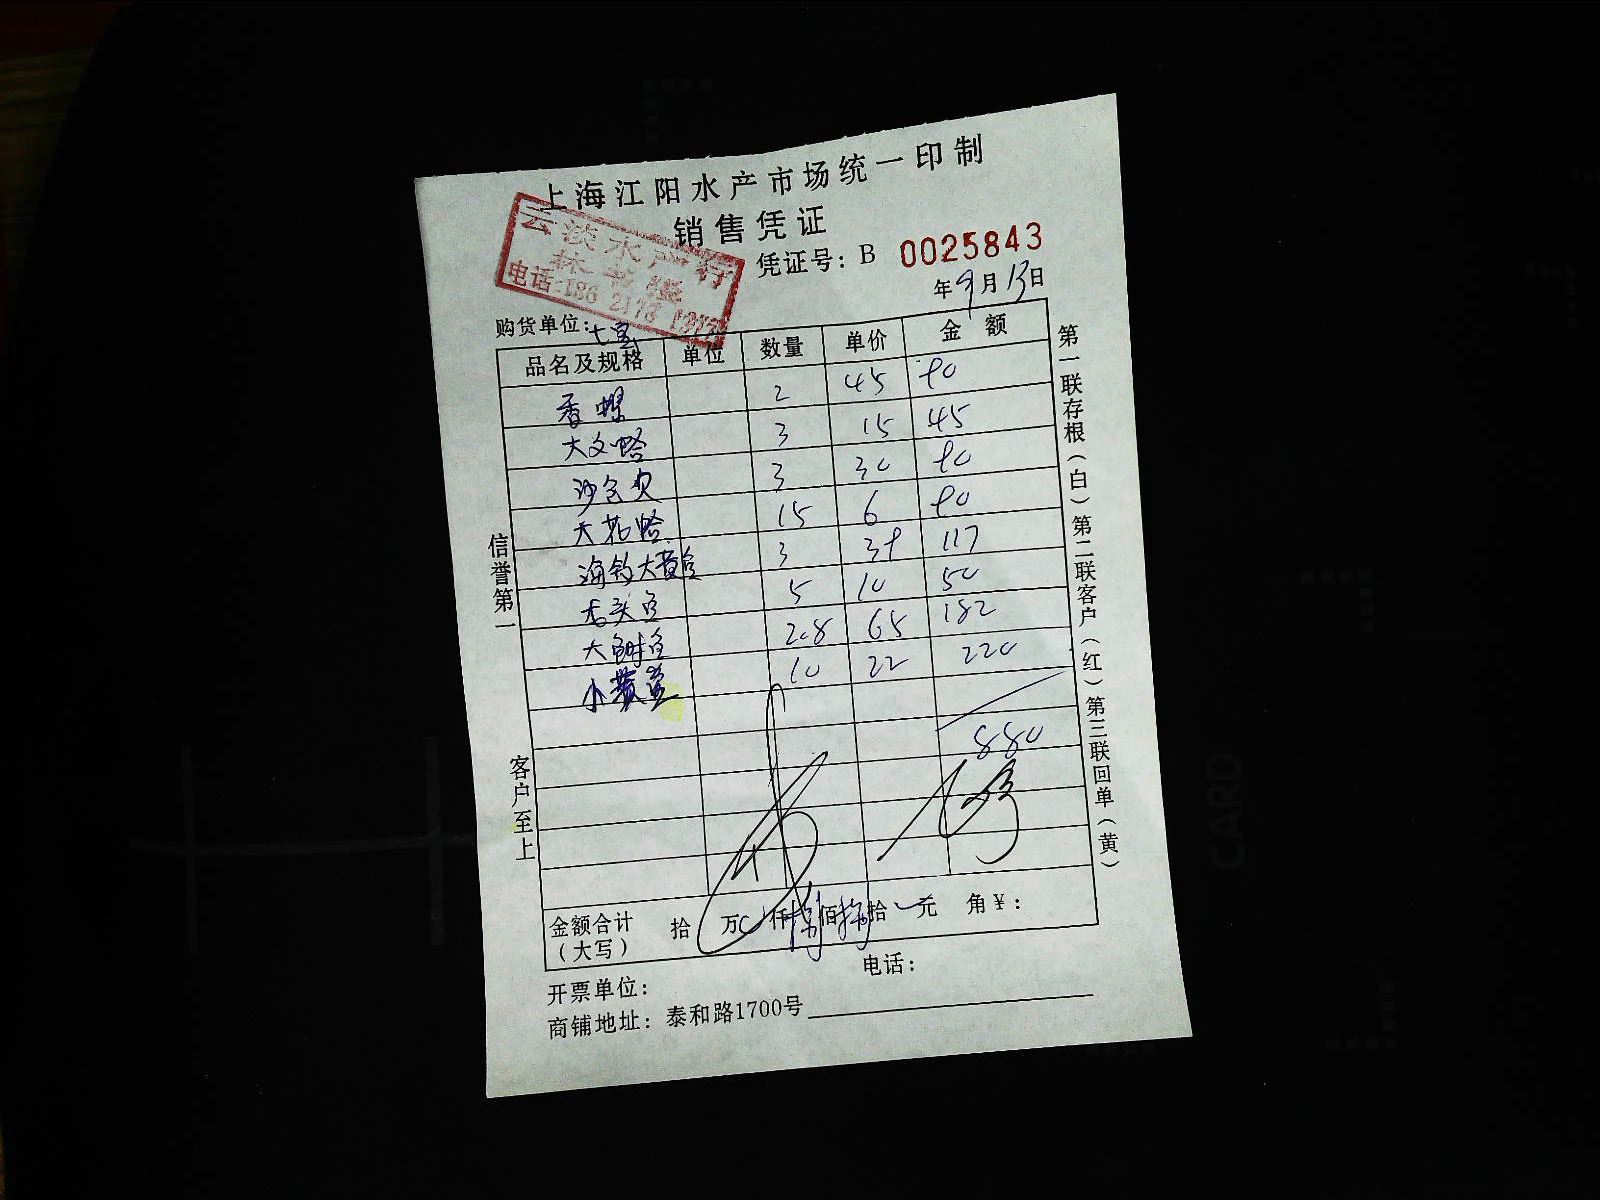 上海江阳水产市场统一印制
销售凭证
云淡水产行
电话:186 2173
凭证号: B 0025843
年9月13日
购货单位: 七宝
品名及规格 单位 数量 单价 金额
香螺 2 45 90
大文蛤 3 15 45
沙白贝 3 30 90
大花蛤 15 6 90
海钓大黄鱼 3 39 117
舌头鱼 5 10 50
大鲥鱼 2.8 65 182
小黄鱼 10 22 220
880
金额合计(大写) 拾 万 仟 捌 佰 捌 拾 元 角 ¥:
开票单位: 电话:
商铺地址: 泰和路1700号
信誉第一 客户至上
第一联存根(白) 第二联客户(红) 第三联回单(黄)
CARD